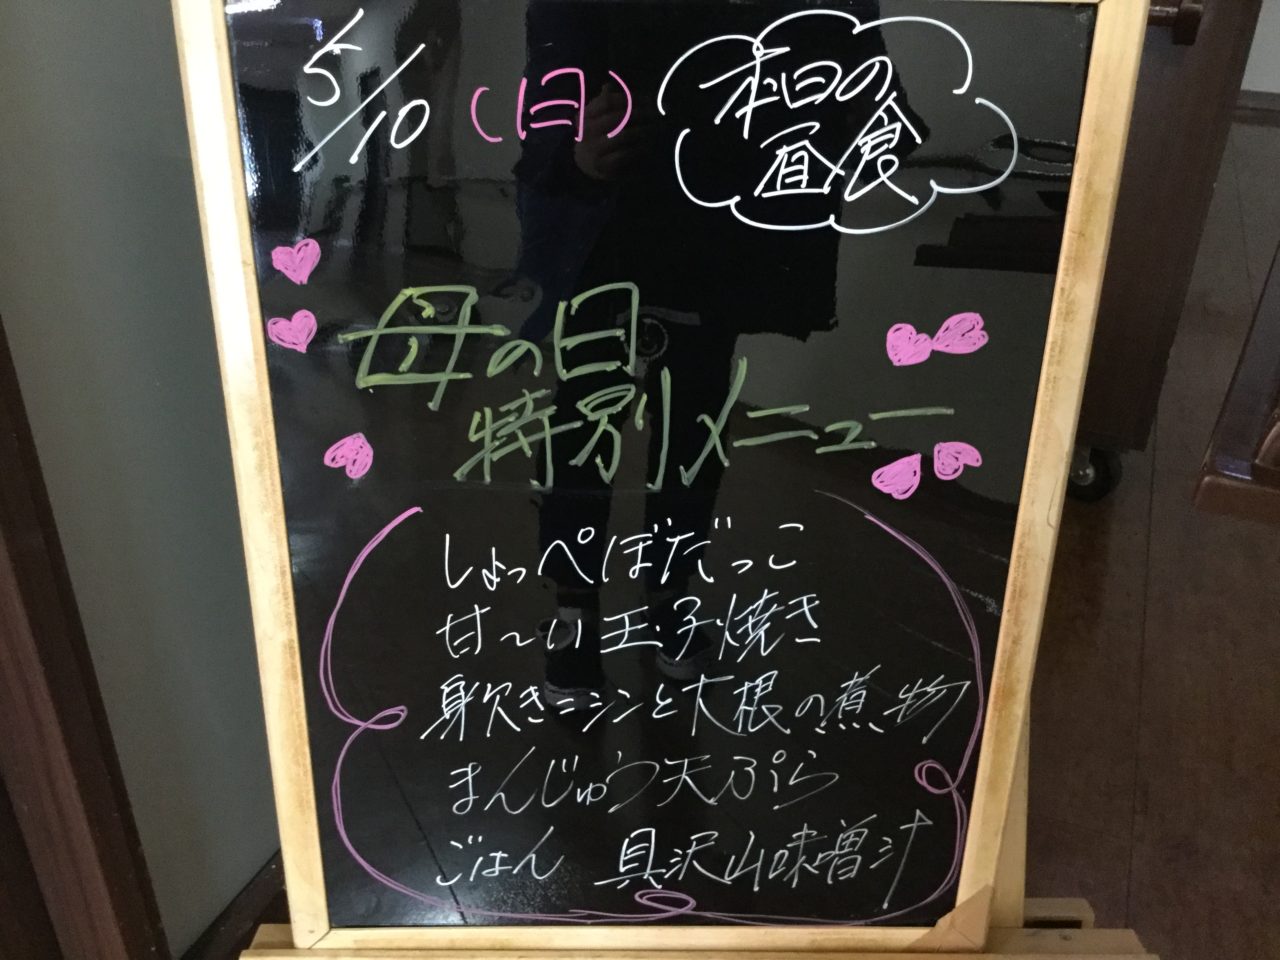 5/10 (日)
本日の
昼食
母の日
特別メニュー
しょっぺぼだっこ
甘〜い玉子焼き
身欠きニシンと大根の煮物
まんじゅう天ぷら
ごはん 具沢山味噌汁